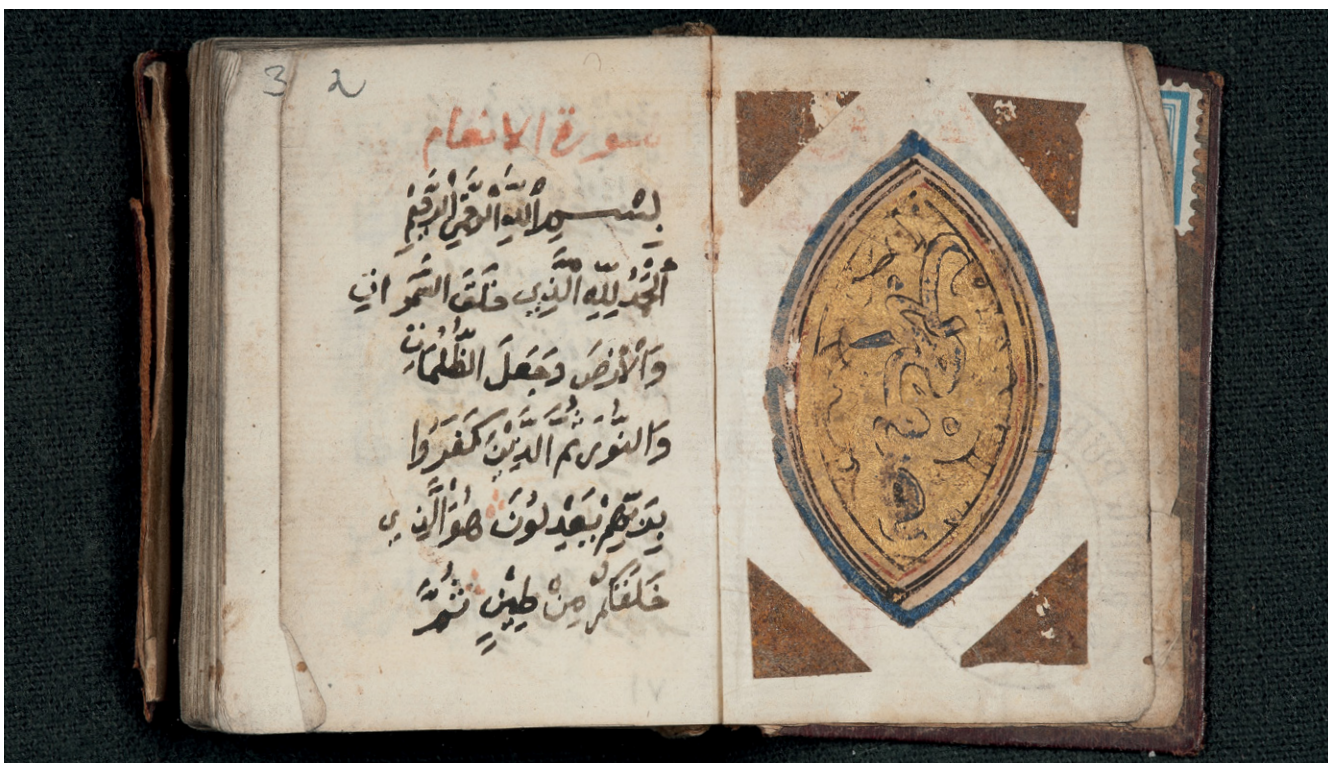 3 2
سورة الانعام
بِسْمِ اللهِ الرَّحْمَنِ الرَّحِيْمِ
أَلْحَمْدُ لِلّهِ الَّذِي خَلَقَ السَّمَوَاتِ
وَالْأَرْضَ وَجَعَلَ الظُّلُمَاتِ
وَالنُّوْرَ ثُمَّ الَّذِيْنَ كَفَرُوا
بِرَبِّهِمْ يَعْدِلُوْنَ هُوَ الَّذِي
خَلَقَكُمْ مِنْ طِيْنٍ ثُمَّ